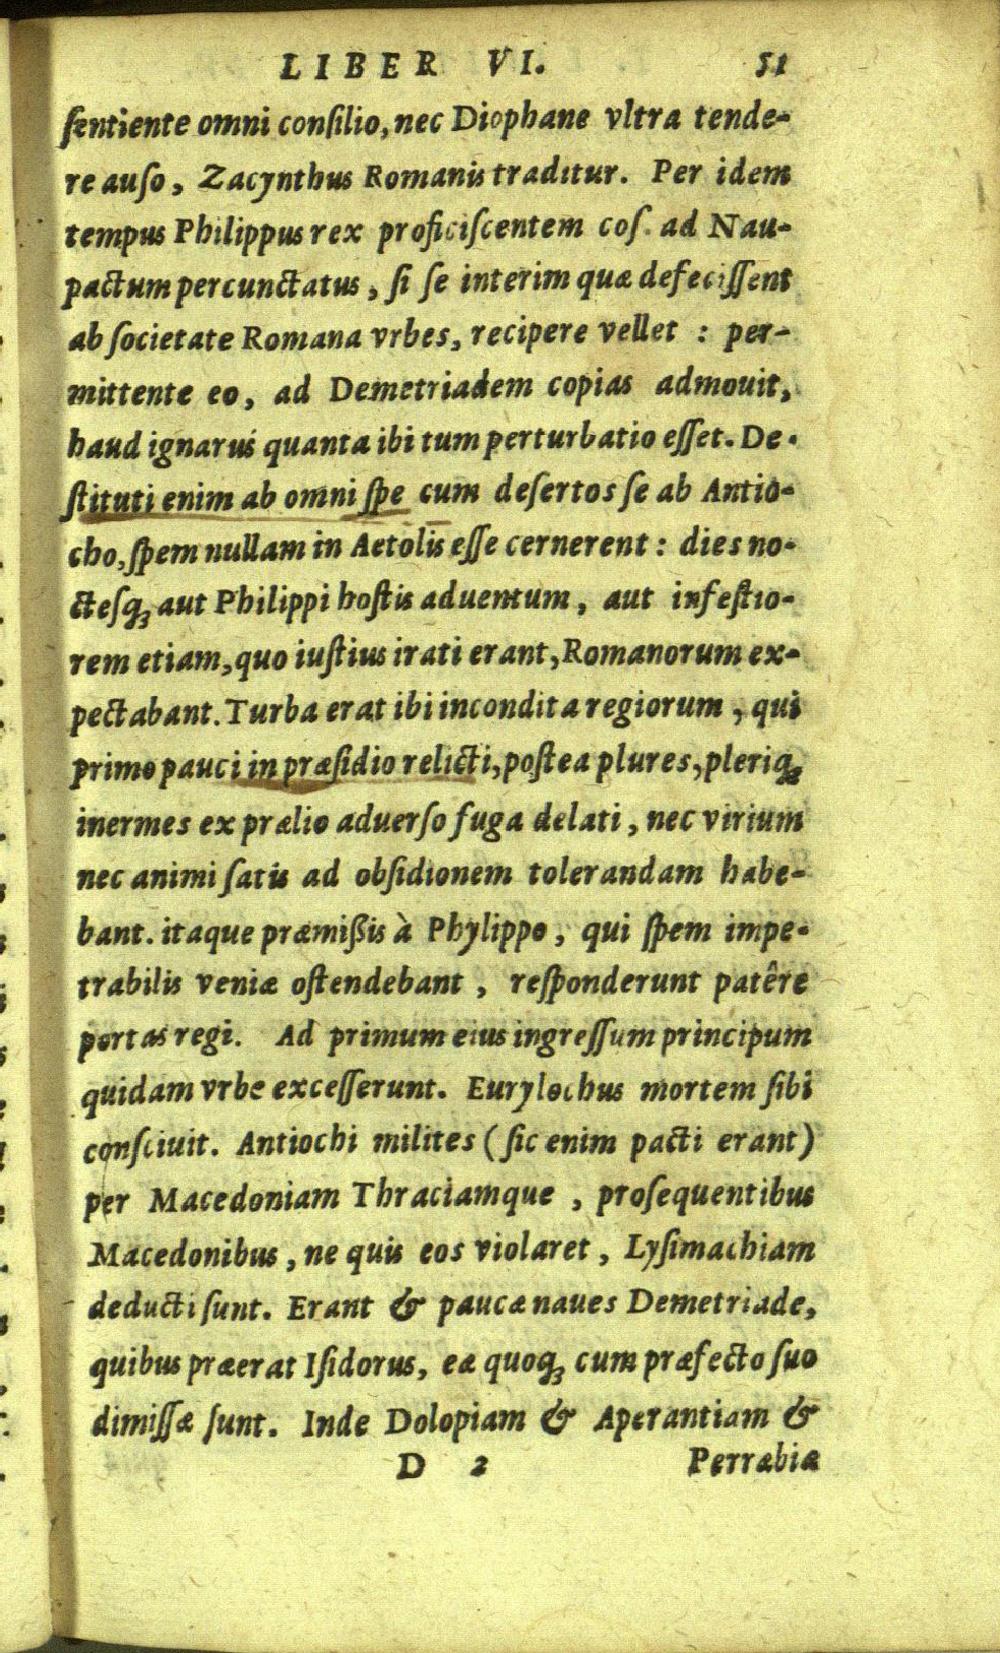 LIBER VI. 51
ſentiente omni conſilio, nec Diophane vltra tende-
re auſo, Zacynthus Romanis traditur. Per idem
tempus Philippus rex proficiſcentem coſ. ad Nau-
pactum percunctatus, ſi ſe interim quæ defeciſſent
ab ſocietate Romana vrbes, recipere vellet : per-
mittente eo, ad Demetriadem copias admouit,
haud ignarus quanta ibi tum perturbatio eſſet. De-
ſtituti enim ab omni ſpe cum deſertos ſe ab Antio-
cho, ſpem nullam in Aetolis eſſe cernerent : dies no-
cteſq; aut Philippi hoſtis aduentum, aut infeſtio-
rem etiam, quo iuſtius irati erant, Romanorum ex-
pectabant. Turba erat ibi incondita regiorum, qui
primo pauci in præſidio relicti, poſtea plures, pleriq;
inermes ex prælio aduerſo fuga delati, nec virium
nec animi ſatis ad obſidionem tolerandam habe-
bant. itaque præmißis à Phylippo, qui ſpem impe-
trabilis veniæ oſtendebant, reſponderunt patêre
portas regi. Ad primum eius ingreſſum principum
quidam vrbe exceſſerunt. Eurylochus mortem ſibi
conſciuit. Antiochi milites (ſic enim pacti erant)
per Macedoniam Thraciamque, proſequentibus
Macedonibus, ne quis eos violaret, Lyſimachiam
deducti ſunt. Erant & paucæ naues Demetriade,
quibus præerat Iſidorus, eæ quoq; cum præfecto ſuo
dimiſſæ ſunt. Inde Dolopiam & Aperantiam &
D 2 Perræbiæ